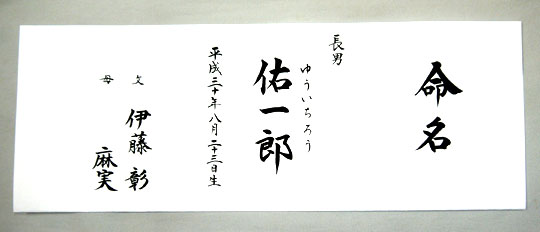 命名
長男
ゆういちろう
佑一郎
平成三十年八月二十三日生
父 伊藤 彰
母 麻実